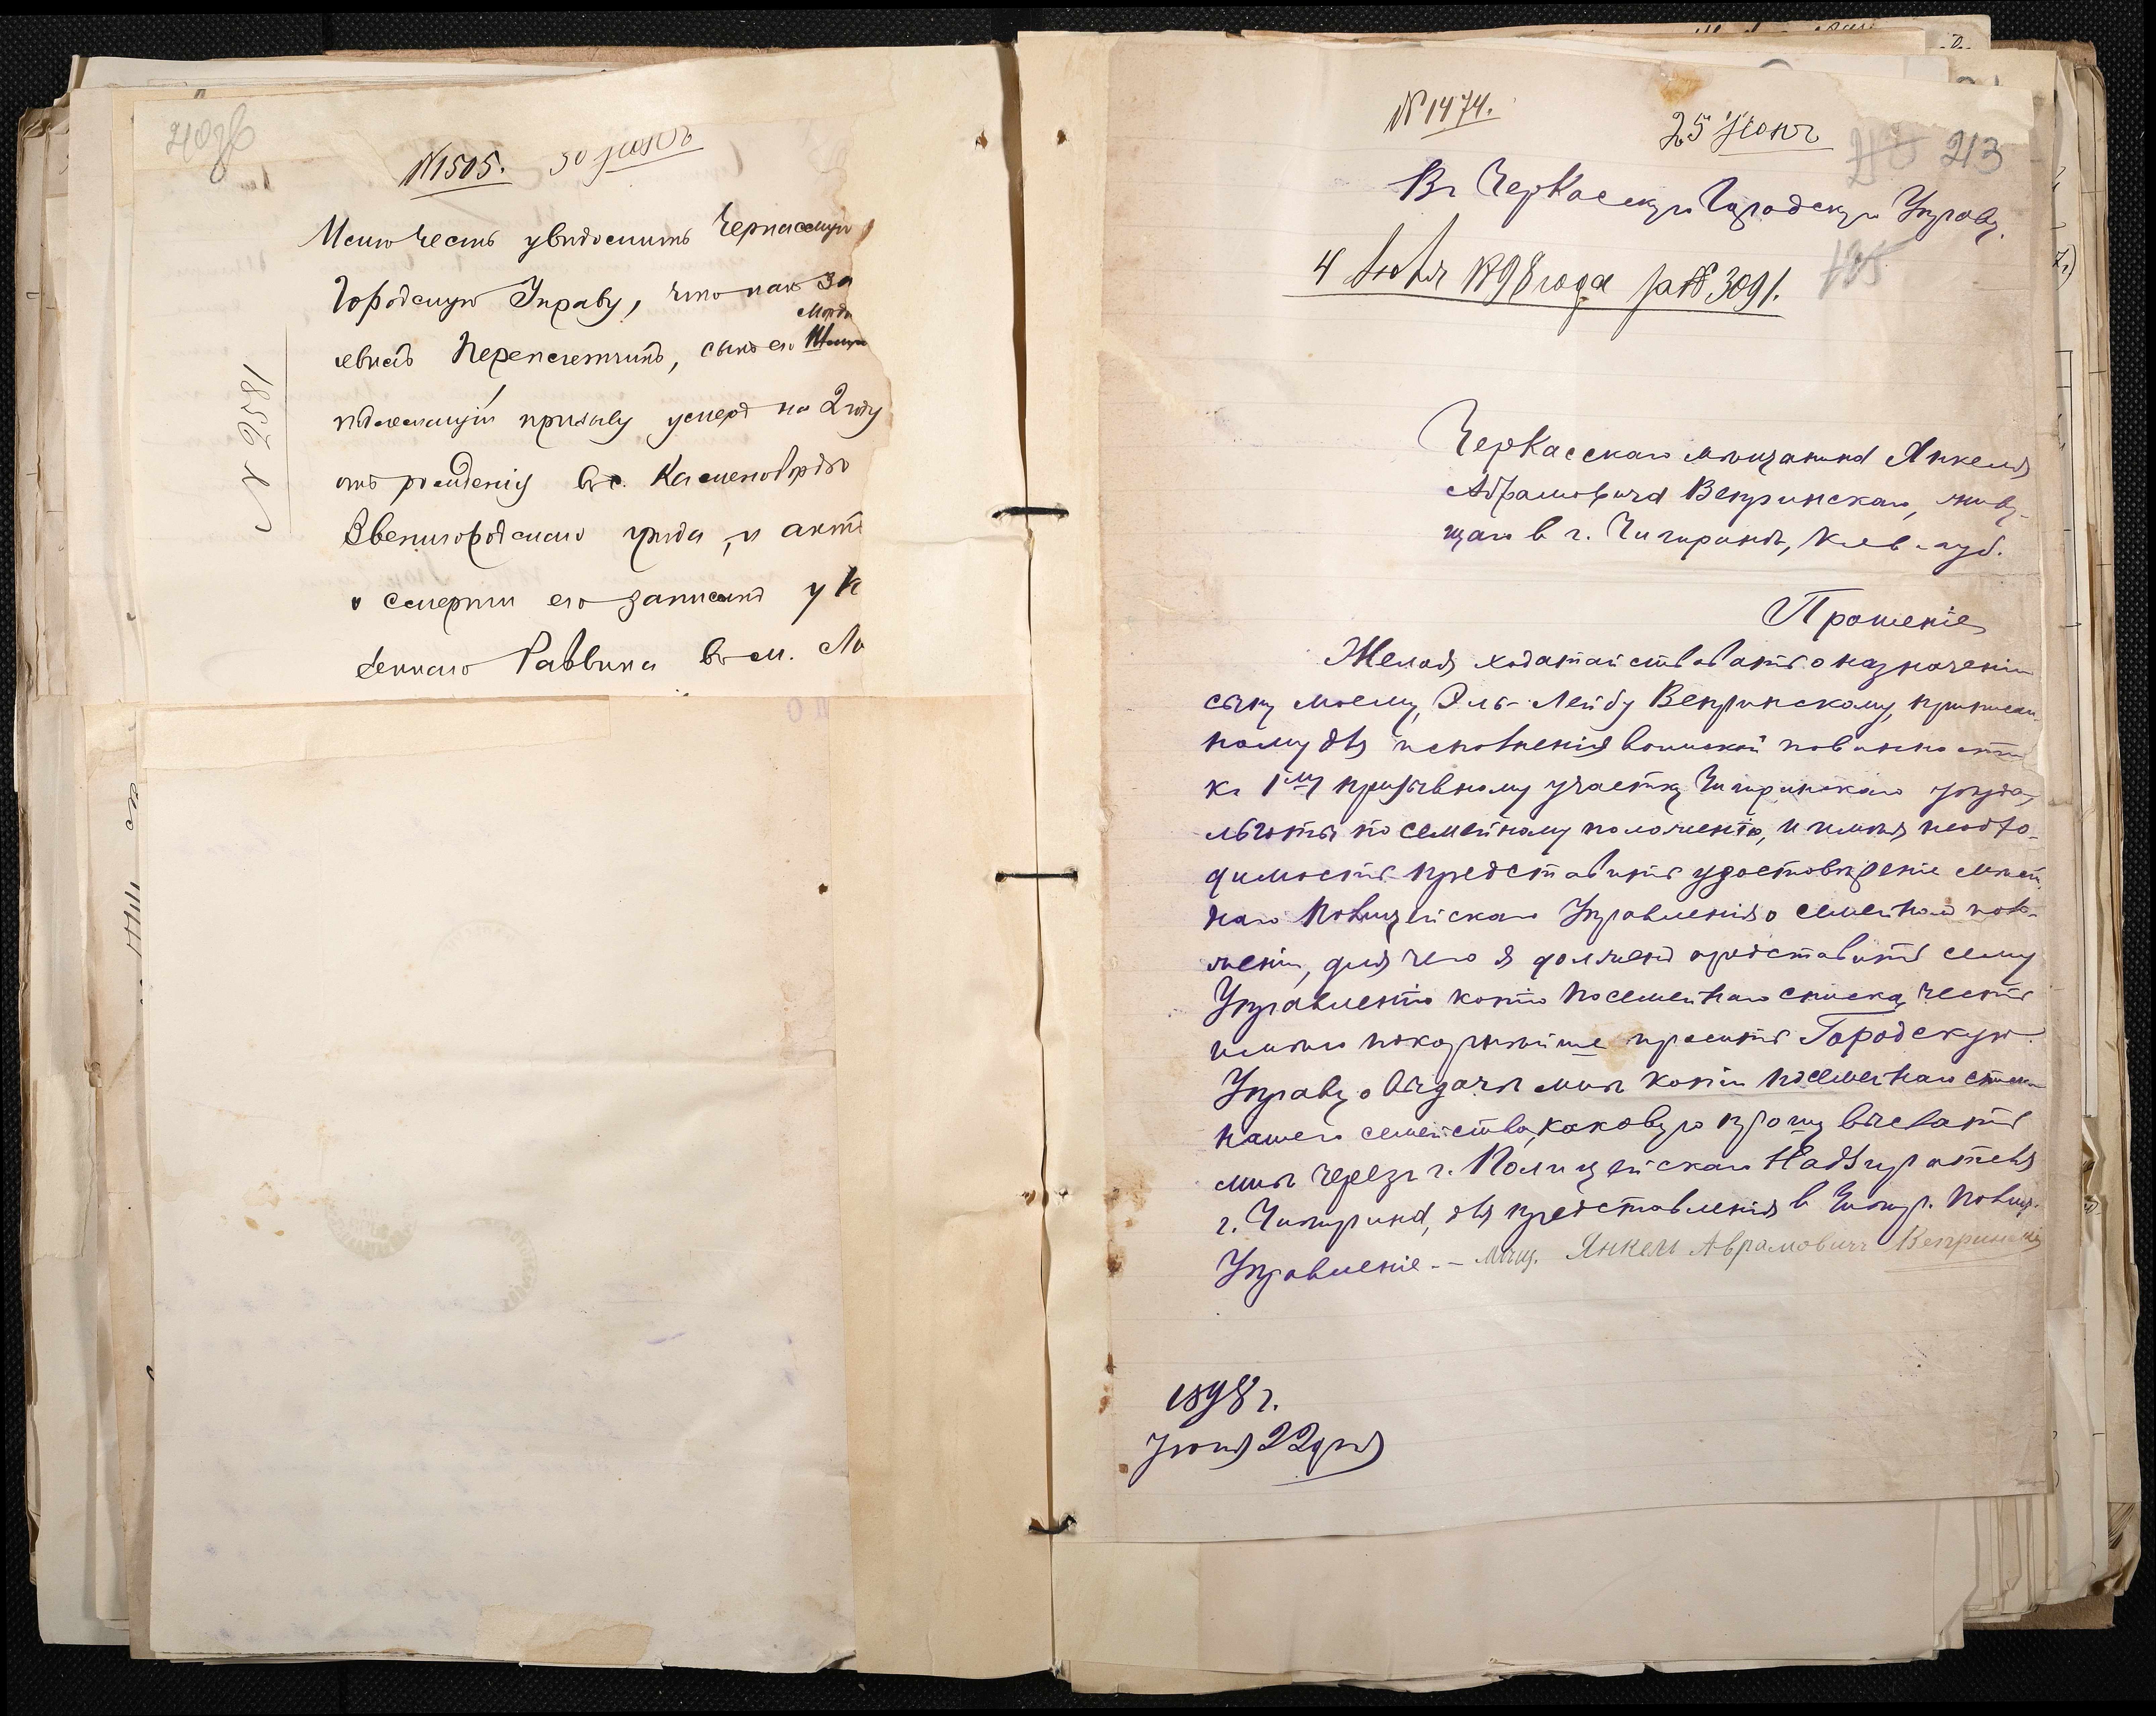 №1505. 30 Іюнь
Имѣю честь увѣдомить Черкасскую
Городскую Управу, что какъ за
Мордк
Переплетчикъ, сынъ его
подлежащій призыву умеръ на 2 году
отъ рожденія въ с. Каменобродѣ
Звенигородскаго уѣзда, и актъ
о смерти его записанъ у К
зеннаго Раввина въ м. Ли
№ 2581
№ 1474.
25 Іюнь
213
Въ Черкасскую Городскую Управу.
4 Іюля 1898 года за № 3091.
135
Черкасскаго мѣщанина Янкеля
Абрамовича Вепринскаго, живу-
щаго в г. Чигиринѣ, Кіев. губ.
Прошеніе
Желая ходатайствовать о назначеніи
сыну моему, Эль-Лейбу Вепринскому, приписан-
ному для исполненія воинской повинности
къ 1му призывному участку Чигиринскаго уѣзда,
льготы по семейному положенію, и имѣя необхо-
димость представить удостовѣреніе мѣст-
наго Полицейскаго Управленія о семейномъ поло-
женіи, для чего я долженъ представить сему
Управленію копію посемейнаго списка, честь
имѣю покорнѣйше просить Городскую
Управу о выдачѣ мнѣ копіи посемейнаго списка
нашего семейства, каковую прошу выслать
мнѣ черезъ г. Полицейскаго Надзирателя
г. Чигирина, для представленія в Чигир. Полиц.
Управленіе. – Мѣщ. Янкель Аврамовичъ Вепринскій
1898 г.
Іюня 22 дня